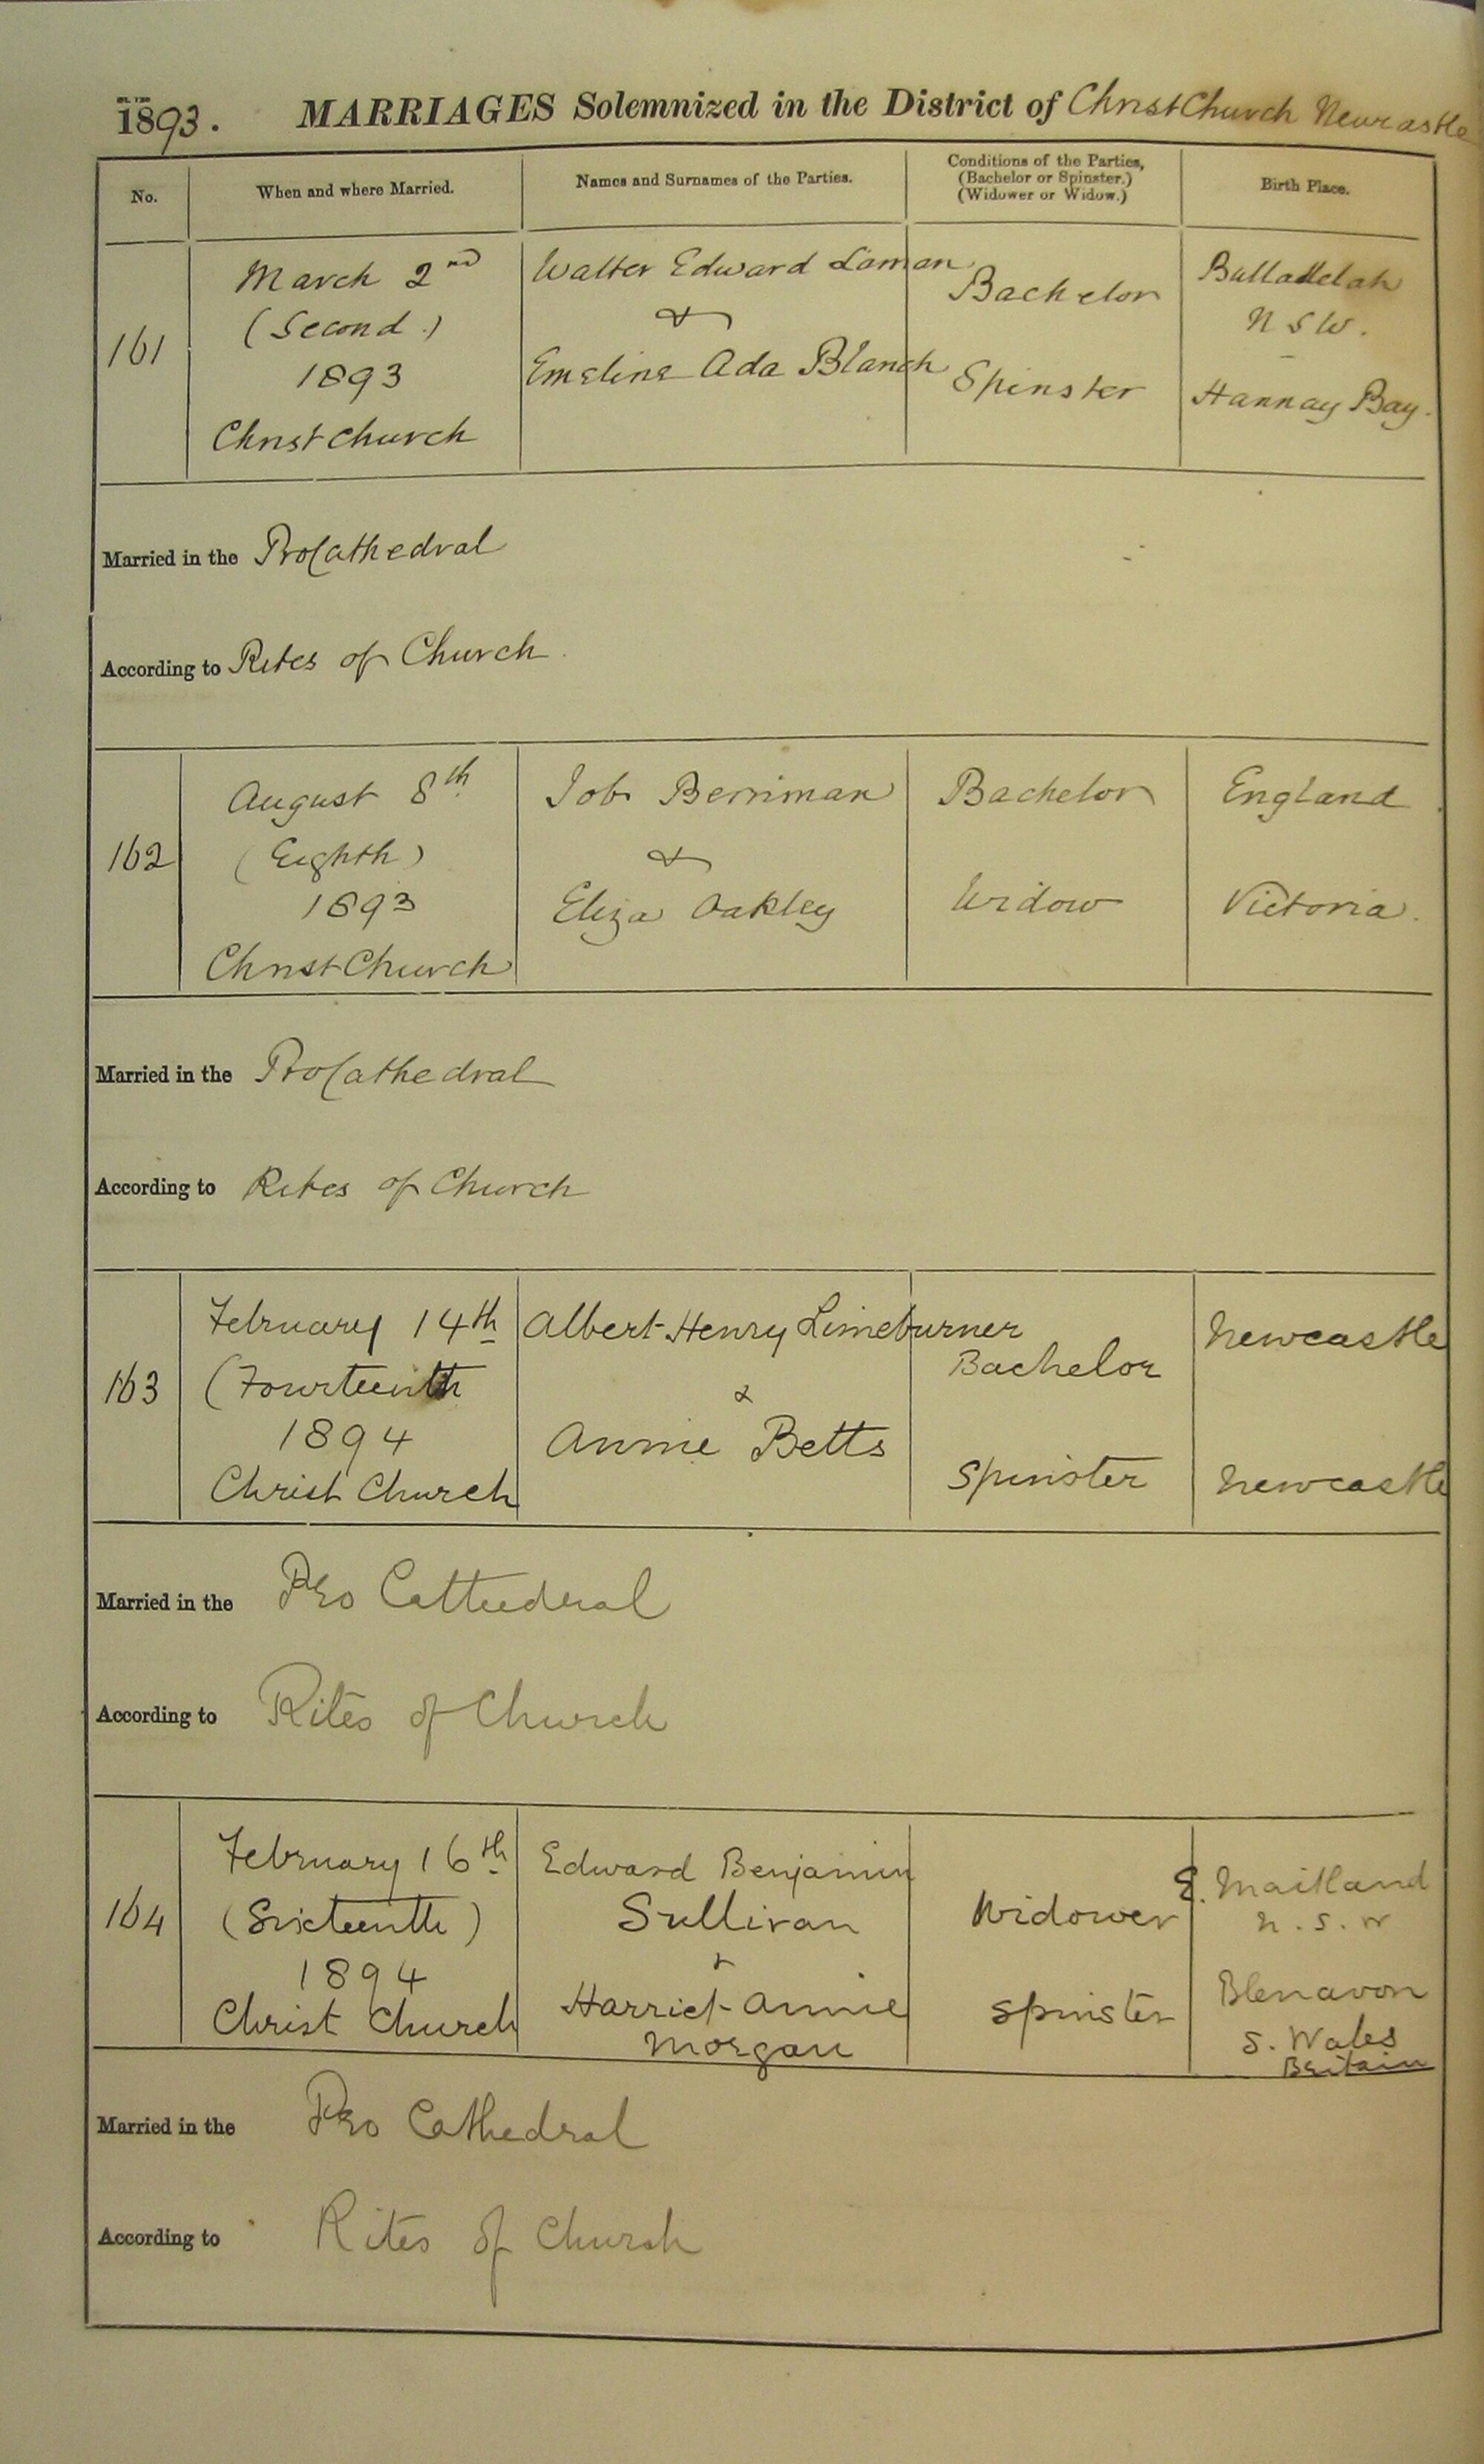 1893. MARRIAGES Solemnized in the District of Christ Church Newcastle
No. When and where Married. Names and Surnames of the Parties. Conditions of the Parties, (Bachelor or Spinster.) (Widower or Widow.) Birth Place.
161
March 2nd
(Second.)
1893
Christ Church
Walter Edward Laman
&
Emeline Ada Blanch
Bachelor
Spinster
Bulladelah
N S W.
Hannay Bay.
Married in the ProCathedral
According to Rites of Church
162
August 8th
(Eighth)
1893
Christ Church
Job Berriman
&
Eliza Oakley
Bachelor
Widow
England
Victoria.
Married in the ProCathedral
According to Rites of Church
163
February 14th
(Fourteenth
1894
Christ Church
Albert Henry Limeburner
&
Annie Betts
Bachelor
Spinster
Newcastle
Newcastle
Married in the Pro Cathedral
According to Rites of Church
164
February 16th
(Sixteenth)
1894
Christ Church
Edward Benjamin
Sullivan
&
Harriet Annie
Morgan
Widower
Spinster
E. Maitland
N. S. W
Blenavon
S. Wales
Britain
Married in the Pro Cathedral
According to Rites of Church